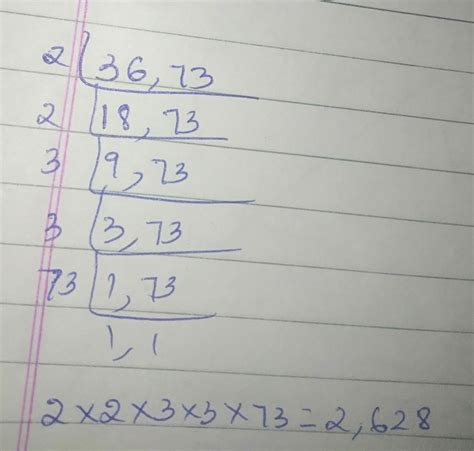 2 36, 73
2 18, 73
3 9, 73
3 3, 73
73 1, 73
1, 1
2×2×3×3×73=2,628